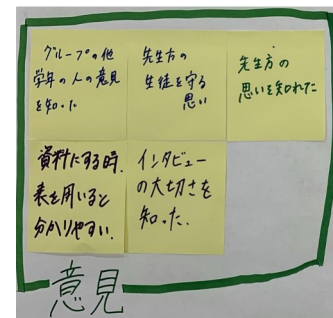 グループの他
学年の人の意見
を知った
先生方の
生徒を守る
思い
先生方の
思いを知れた
資料にする時、
表を用いると
分かりやすい。
インタビュー
の大切さを
知った.
意見